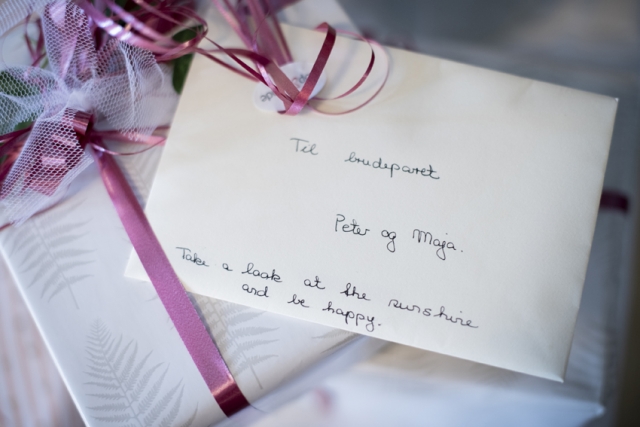 Til brudeparet
Peter og Maja.
Take a look at the sunshine
and be happy.